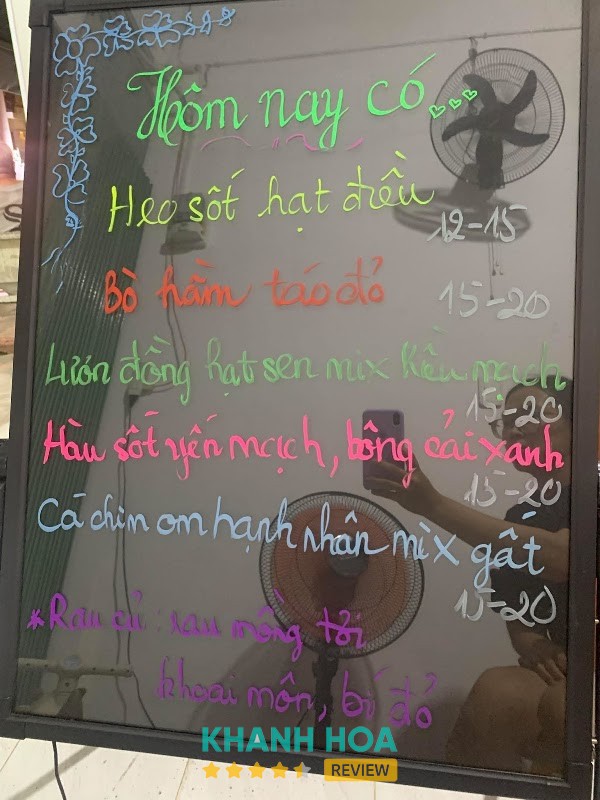 Hôm nay có...
Heo sốt hạt điều
12-15
Bò hầm táo đỏ
15-20
Lươn đồng hạt sen mix kiều mạch
15-20
Hàu sốt yến mạch, bông cải xanh
15-20
Cá chim om hạnh nhân mix gất
15-20
*Rau củ: rau mồng tơi
khoai môn, bí đỏ
KHANH HOA
REVIEW